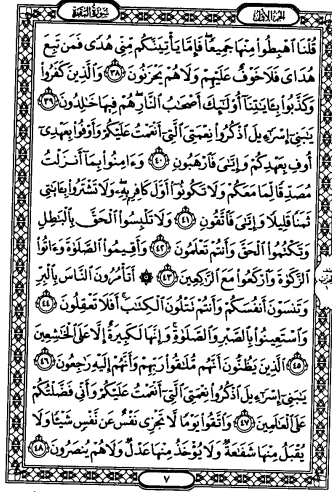 سُورَةُ البَقَرَةِ الجُزْءُ الأَوَّلُ
قُلْنَا ٱهْبِطُوا۟ مِنْهَا جَمِيعًا فَإِمَّا يَأْتِيَنَّكُم مِّنِّى هُدًى فَمَن تَبِعَ
هُدَاىَ فَلَا خَوْفٌ عَلَيْهِمْ وَلَا هُمْ يَحْزَنُونَ ٣٨ وَٱلَّذِينَ كَفَرُوا۟
وَكَذَّبُوا۟ بِـَٔايَـٰتِنَآ أُو۟لَـٰٓئِكَ أَصْحَـٰبُ ٱلنَّارِ هُمْ فِيهَا خَـٰلِدُونَ ٣٩
يَـٰبَنِىٓ إِسْرَٰٓءِيلَ ٱذْكُرُوا۟ نِعْمَتِىَ ٱلَّتِىٓ أَنْعَمْتُ عَلَيْكُمْ وَأَوْفُوا۟ بِعَهْدِىٓ
أُوفِ بِعَهْدِكُمْ وَإِيَّـٰىَ فَٱرْهَبُونِ ٤٠ وَءَامِنُوا۟ بِمَآ أَنزَلْتُ
مُصَدِّقًا لِّمَا مَعَكُمْ وَلَا تَكُونُوٓا۟ أَوَّلَ كَافِرٍۭ بِهِۦ وَلَا تَشْتَرُوا۟ بِـَٔايَـٰتِى
ثَمَنًا قَلِيلًا وَإِيَّـٰىَ فَٱتَّقُونِ ٤١ وَلَا تَلْبِسُوا۟ ٱلْحَقَّ بِٱلْبَـٰطِلِ
وَتَكْتُمُوا۟ ٱلْحَقَّ وَأَنتُمْ تَعْلَمُونَ ٤٢ وَأَقِيمُوا۟ ٱلصَّلَوٰةَ وَءَاتُوا۟
ٱلزَّكَوٰةَ وَٱرْكَعُوا۟ مَعَ ٱلرَّٰكِعِينَ ٤٣ ۞ أَتَأْمُرُونَ ٱلنَّاسَ بِٱلْبِرِّ
وَتَنسَوْنَ أَنفُسَكُمْ وَأَنتُمْ تَتْلُونَ ٱلْكِتَـٰبَ أَفَلَا تَعْقِلُونَ ٤٤
وَٱسْتَعِينُوا۟ بِٱلصَّبْرِ وَٱلصَّلَوٰةِ وَإِنَّهَا لَكَبِيرَةٌ إِلَّا عَلَى ٱلْخَـٰشِعِينَ
٤٥ ٱلَّذِينَ يَظُنُّونَ أَنَّهُم مُّلَـٰقُوا۟ رَبِّهِمْ وَأَنَّهُمْ إِلَيْهِ رَٰجِعُونَ ٤٦
يَـٰبَنِىٓ إِسْرَٰٓءِيلَ ٱذْكُرُوا۟ نِعْمَتِىَ ٱلَّتِىٓ أَنْعَمْتُ عَلَيْكُمْ وَأَنِّى فَضَّلْتُكُمْ
عَلَى ٱلْعَـٰلَمِينَ ٤٧ وَٱتَّقُوا۟ يَوْمًا لَّا تَجْزِى نَفْسٌ عَن نَّفْسٍ شَيْـًٔا وَلَا
يُقْبَلُ مِنْهَا شَفَـٰعَةٌ وَلَا يُؤْخَذُ مِنْهَا عَدْلٌ وَلَا هُمْ يُنصَرُونَ ٤٨
٧